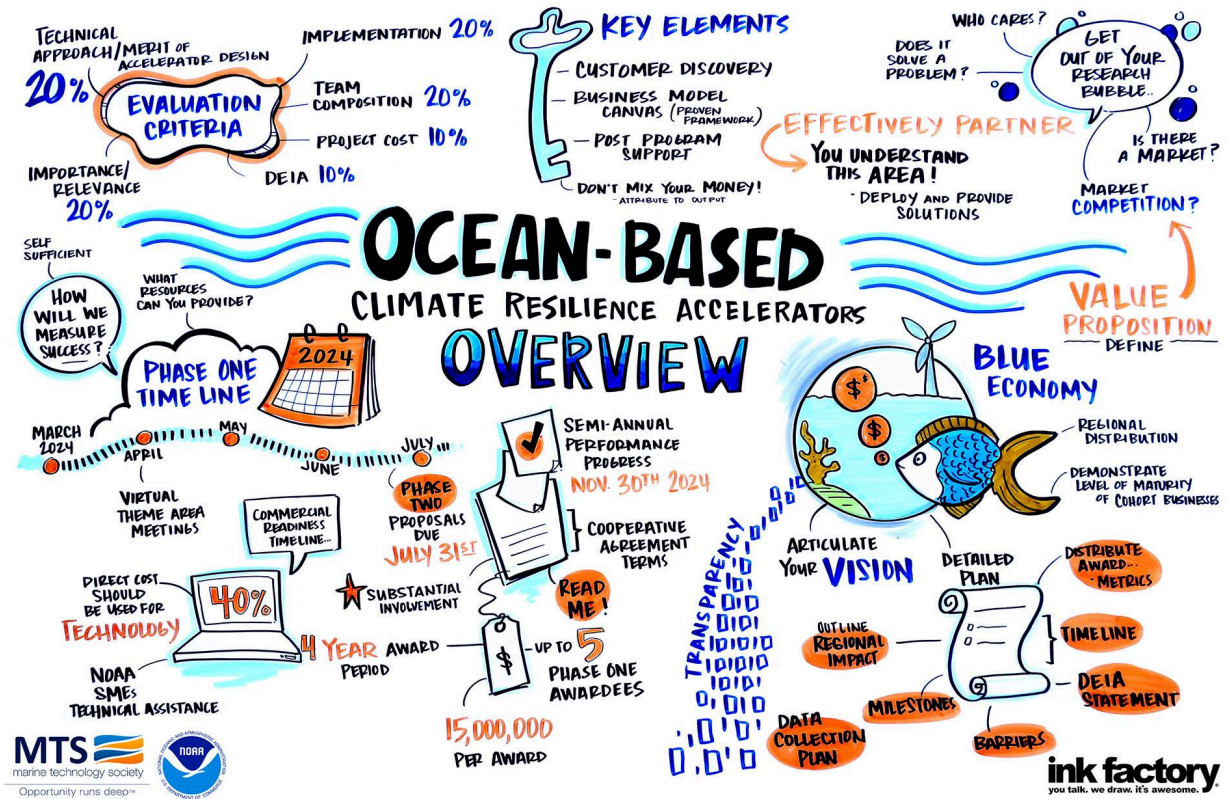 TECHNICAL
APPROACH/MERIT OF
ACCELERATOR DESIGN
20%
IMPLEMENTATION 20%
EVALUATION
CRITERIA
TEAM
COMPOSITION 20%
PROJECT COST 10%
DEIA 10%
IMPORTANCE/
RELEVANCE
20%
KEY ELEMENTS
- CUSTOMER DISCOVERY
- BUSINESS MODEL
CANVAS (PROVEN
FRAMEWORK)
- POST PROGRAM
SUPPORT
DON'T MIX YOUR MONEY!
- ATTRIBUTE TO OUTPUT
WHO CARES?
DOES IT
SOLVE A
PROBLEM?
GET
OUT OF YOUR
RESEARCH
BUBBLE..
EFFECTIVELY PARTNER
YOU UNDERSTAND
THIS AREA!
- DEPLOY AND PROVIDE
SOLUTIONS
IS THERE
A MARKET?
MARKET
COMPETITION?
VALUE
PROPOSITION
DEFINE
OCEAN-BASED
CLIMATE RESILIENCE ACCELERATORS
OVERVIEW
SELF
SUFFICIENT
HOW
WILL WE
MEASURE
SUCCESS?
WHAT
RESOURCES
CAN YOU PROVIDE?
PHASE ONE
TIME LINE
2024
MARCH
2024
APRIL
MAY
JUNE
JULY
VIRTUAL
THEME AREA
MEETINGS
PHASE
TWO
PROPOSALS
DUE
JULY 31ST
COMMERCIAL
READINESS
TIMELINE...
DIRECT COST
SHOULD
BE USED FOR
TECHNOLOGY
40%
NOAA
SMEs
TECHNICAL ASSISTANCE
SEMI-ANNUAL
PERFORMANCE
PROGRESS
NOV. 30TH 2024
COOPERATIVE
AGREEMENT
TERMS
READ
ME!
SUBSTANTIAL
INVOLVEMENT
4 YEAR AWARD
PERIOD
$
- UP TO 5
PHASE ONE
AWARDEES
15,000,000
PER AWARD
BLUE
ECONOMY
$
$
$
REGIONAL
DISTRIBUTION
DEMONSTRATE
LEVEL OF MATURITY
OF COHORT BUSINESSES
TRANSPARENCY
ARTICULATE
YOUR VISION
DETAILED
PLAN
DISTRIBUTE
AWARD...
- METRICS
OUTLINE
REGIONAL
IMPACT
TIMELINE
DEIA
STATEMENT
MILESTONES
BARRIERS
DATA
COLLECTION
PLAN
MTS
marine technology society
Opportunity runs deep™
NOAA
NATIONAL OCEANIC AND ATMOSPHERIC ADMINISTRATION
U.S. DEPARTMENT OF COMMERCE
ink factory
you talk. we draw. it's awesome.